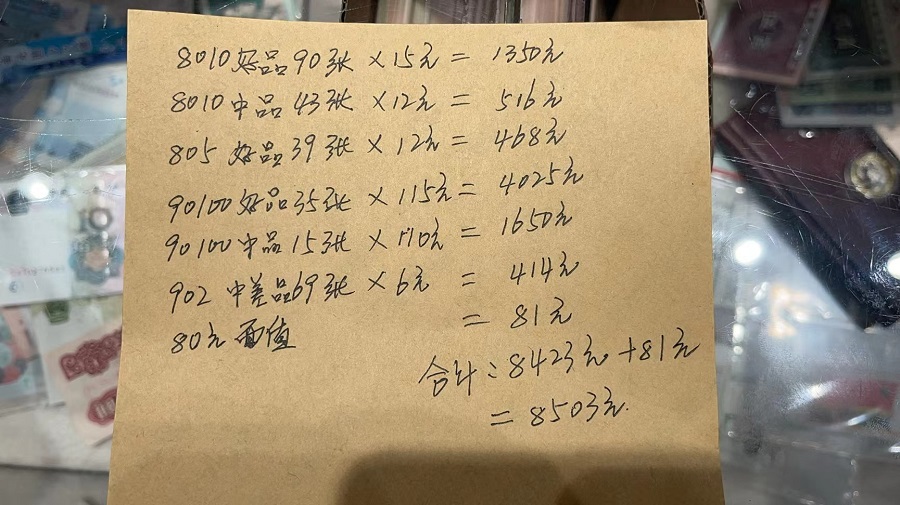 8010好品90张×15元=1350元
8010中品43张×12元=516元
805好品39张×12元=468元
90100好品35张×115元=4025元
90100中品15张×110元=1650元
902中差品69张×6元=414元
80元面值=81元
合计:8423元+81元
=8503元.
10